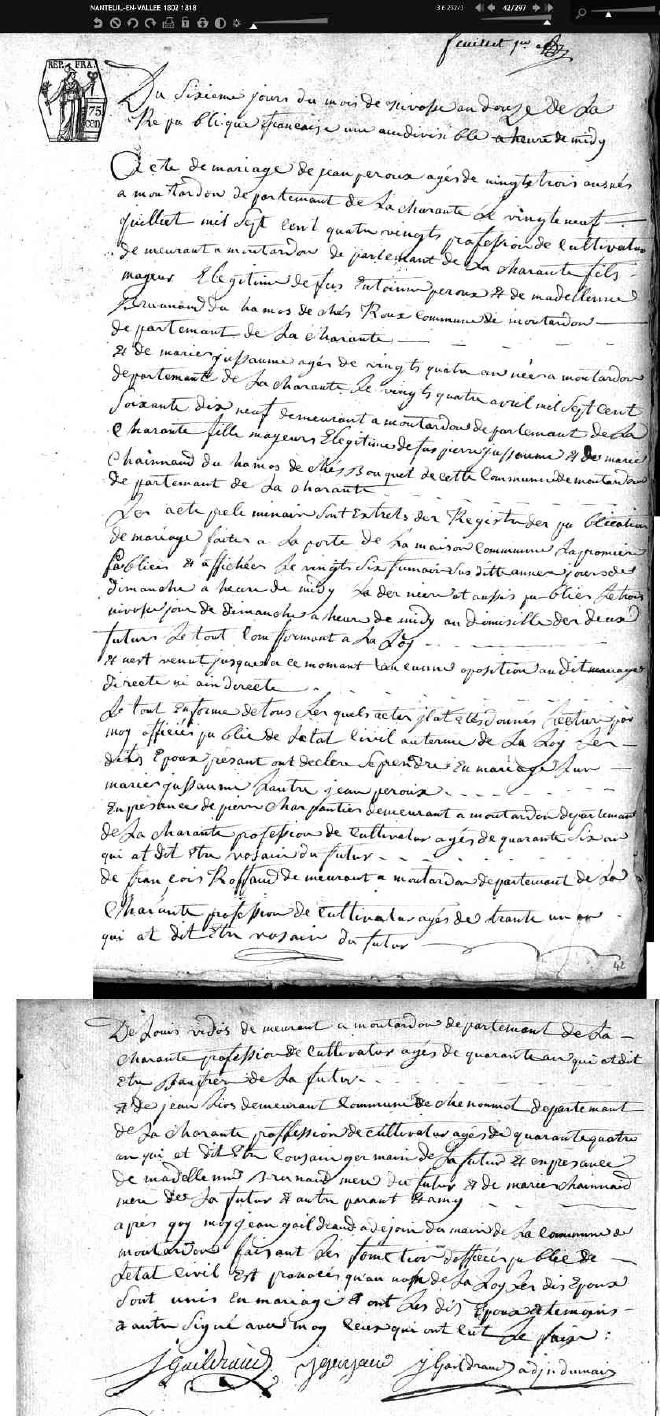 NANTEUIL-EN-VALLEE 1802 1818
42/297
feuillet
REP. FRA.
75 cen
Du Sixieme jours du mois de nivose an douze de La
Republique française une aindivisible a heure de midy
Acte de mariage de jean peroux agés de vingts trois ans nés
a moutardon departement de La charante Le vingt neuf
juilliet mil Sept cent quatre vingts profession de Cultivateur
demeurant a moutardon departemant de La charante fils
majeur Elegitime de fus peroux & de madellenne
Brunaud du hamos de chés Roux Commune de moutardon
departemant de La charante
& de marie jussaume agés de vingts quatre an née a moutardon
departemant de La charante Le vingts quatre avril mil Sept cent
Soixante dix neuf demeurant a moutardon departemant de La
Charante fille majeurs Elegitime de fus pierre jussaume & de marie
Chainnaud du hamos de chés Bouquet de cette Commune de moutardon
departemant de La charante
Les acte preleminair Sont Extrets des Registre des publication
de mariage faites a La porte de La maison Commune La premiere
publiée & affichées Le vingts Six fumair jours de
dimanche a heure de midy La der publiés Le trois
nivose jour de dimanche a heure de midy au domisille des deux
futurs Le tout Confformant a La Loy
& nest venut jusqua a ce momant aucunne oposition audit mariage
directe ni aindirecte
Le tout Enforme de tous Les quels actes donnés Lecture par
moy officiés publie de Letat Civil au terme de La Loy Les
dits Epoux présant ont declere Seprendre En mariage Lun
marie jussaume Lautre jean peroux
Enpresance de pierre Charpantier demeurant a moutardon departemant
de La charante profession de Cultivateur agés de quarante Six an
qui at dit Etre vosain du futur
de françois Roffaud demeurant a moutardon departemant de La
Charante profession de Cultivateur agés de trante un an
qui at dit Etre vosain du futur
42
De Louis demeurant a moutardon departemant de La
charante profession de Cultivateur agés de quarante an qui at dit
Etre Baufrere de La futur
& de jean demeurant Commune de chenommet departemant
de La Charante proffession de cultivateur agés de quarante quatre
an qui at dit Etre Cousain germain de La futur & enpresance
de madellenne Brunaud mere du futur & de marie chainnaud
mere de La futur & autre parant & amy
apres qoy moy jean gaildraud adejoin du maire de La commune de
moutardon faisant Les fonction doffeciés publie de
Letat Civil Est prononcés quau nom de La Loy Les dis Epoux
Sont unis En mariage & ont Les dis Epoux & temoins
& autre Signé avec moy Ceux qui ont Sut Le faire :
J Gaildraud J Gaildraud adjoin du maire